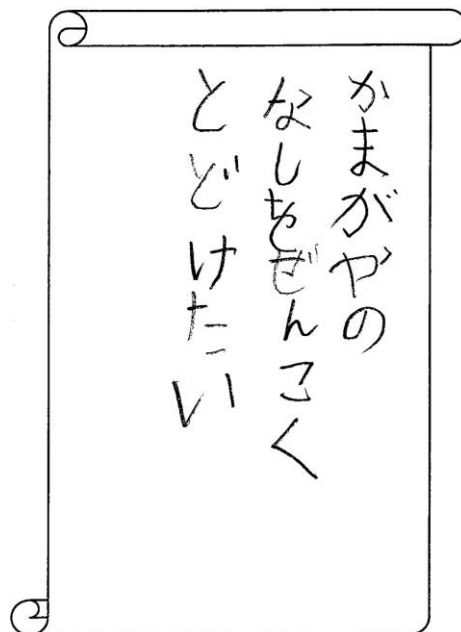 かまがやの
なしをぜんこく
とどけたい